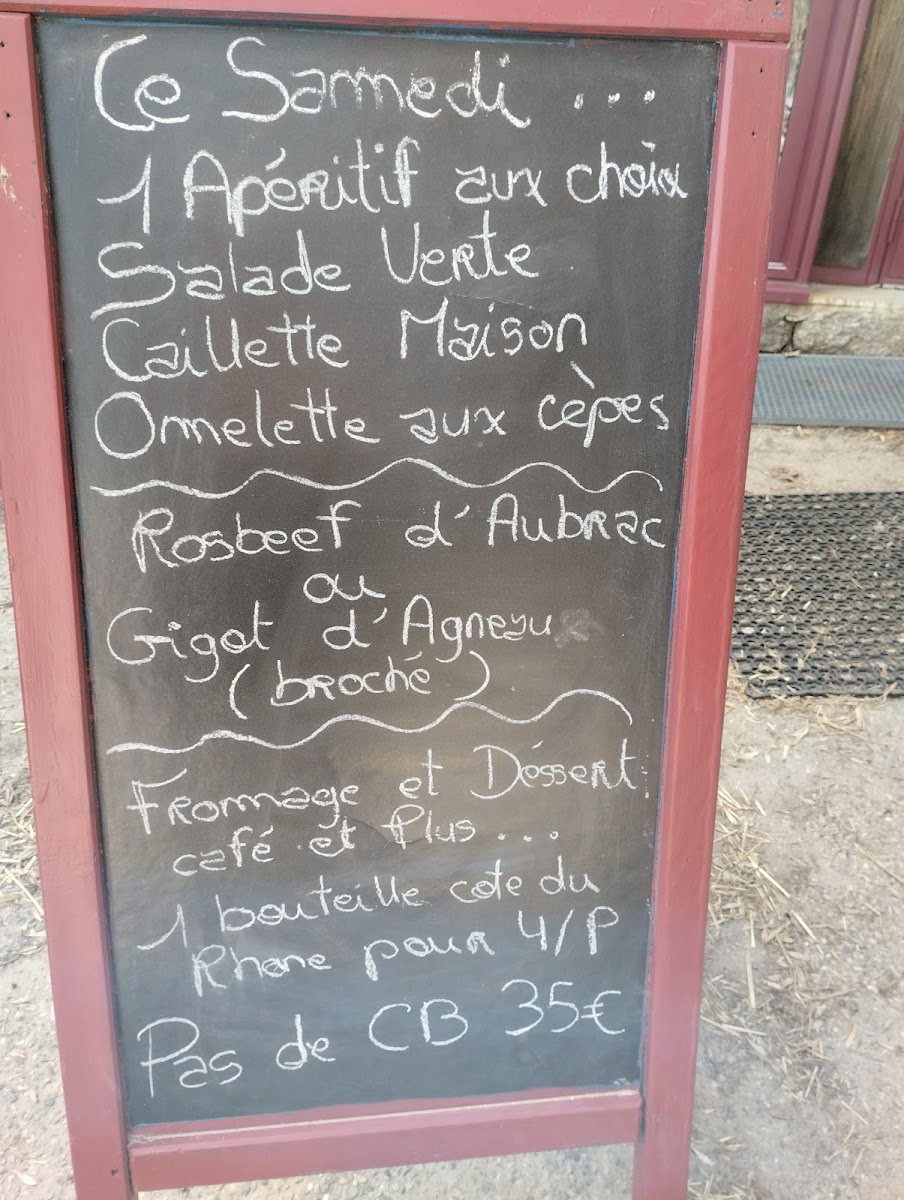 Ce Samedi ...
1 Apéritif aux choix
Salade Verte
Caillette Maison
Ommelette aux cèpes
Rosbeef d'Aubrac
ou
Gigot d'Agneau
(broché)
Fromage et Déssert
café et Plus ...
1 bouteille cote du
Rhone pour 4/P
Pas de CB 35€